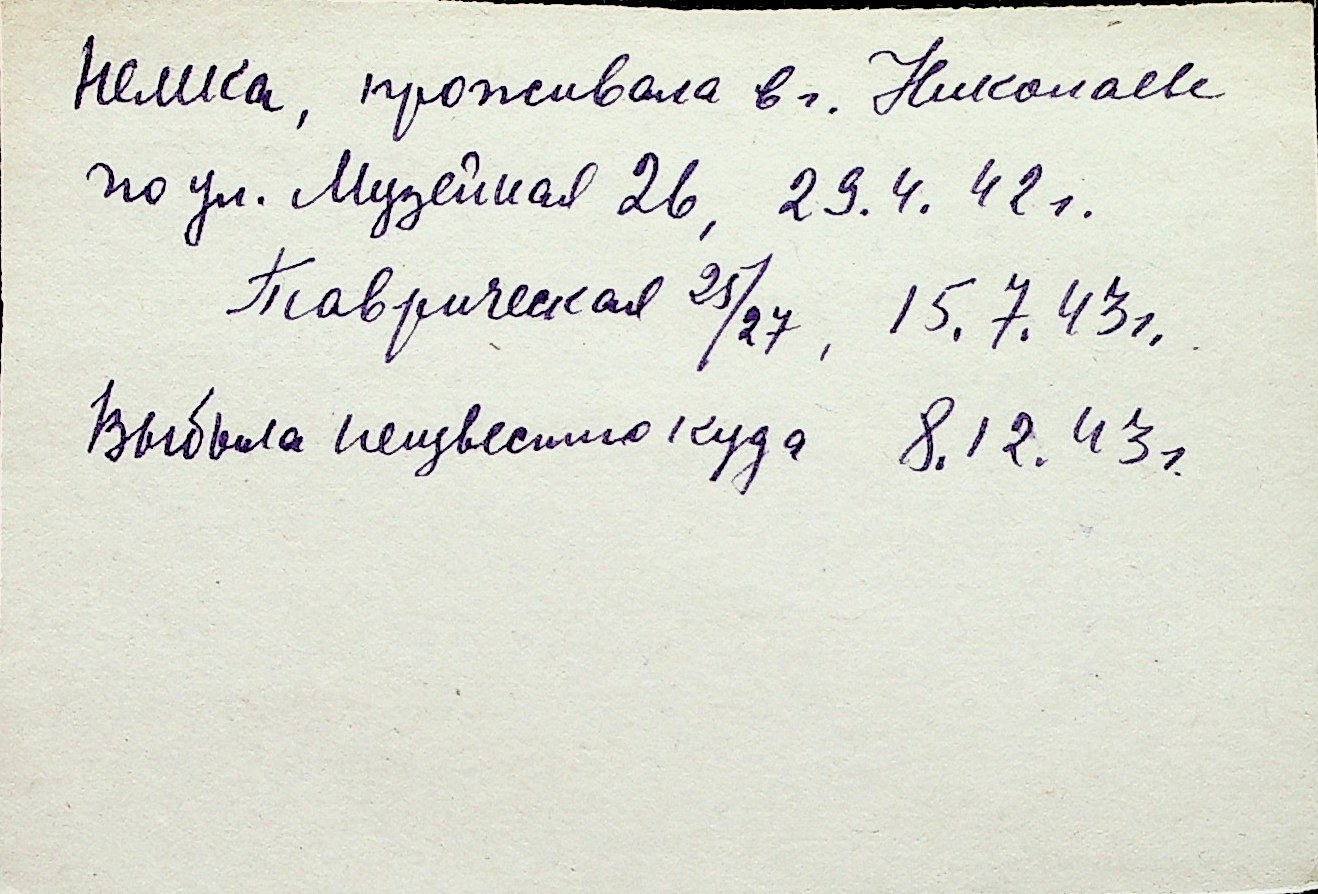 Немка, проживала в г. Николаеве
по ул. Музейная 26, 29.4.42 г.
Таврическая 25/27, 15.7.43 г.
Выбыла неизвестно куда 8.12.43 г.